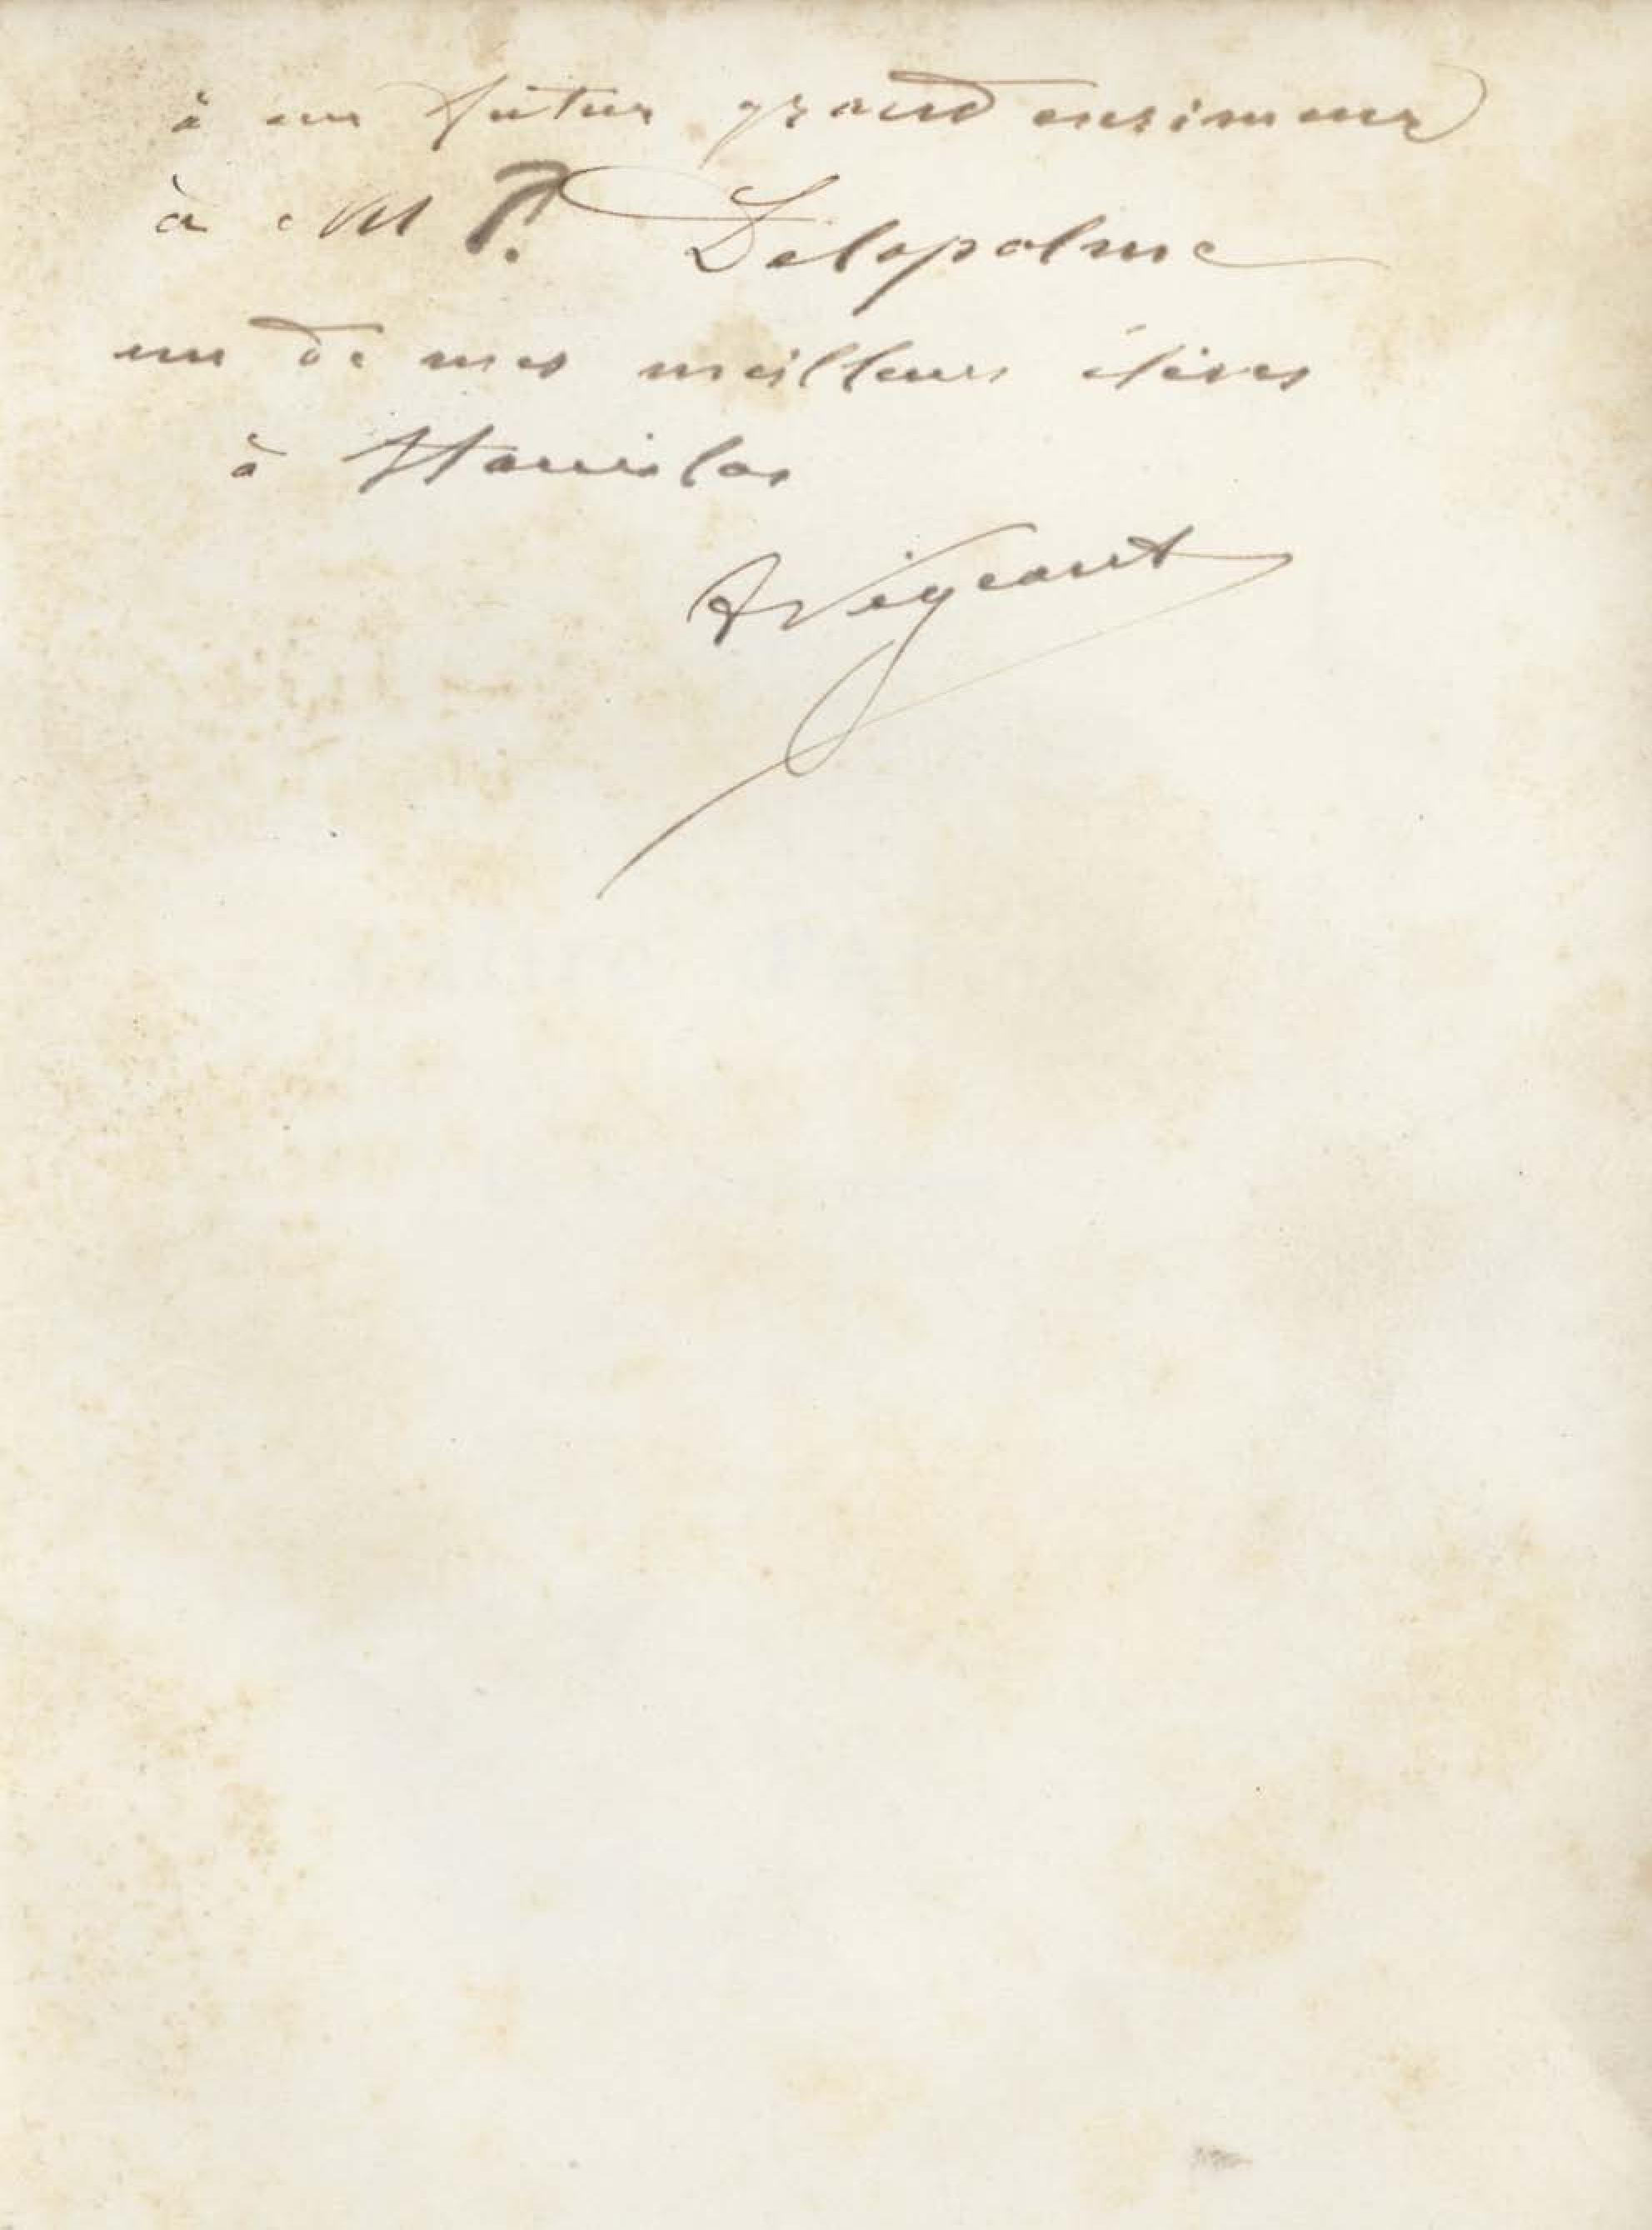 à un futur grand escrimeur
à M P. Delapalme
un de mes meilleurs élèves
à Stanislas
A Vigeant